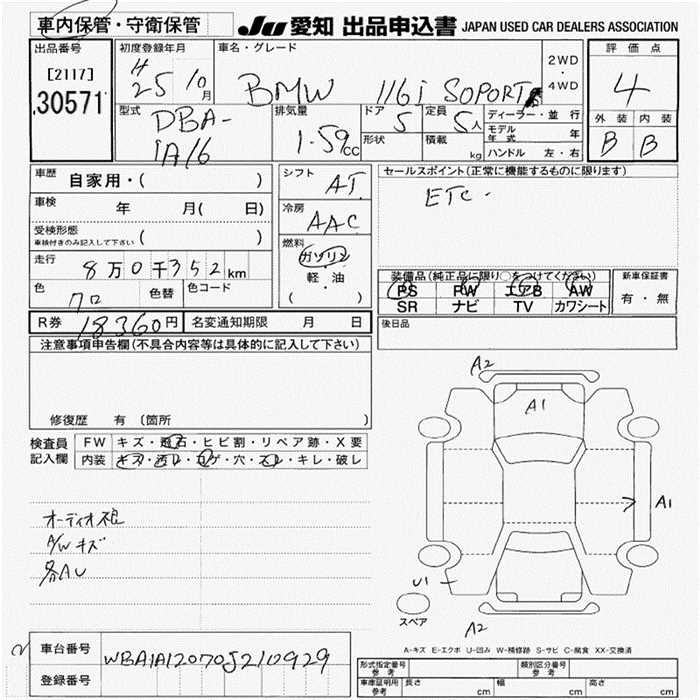 車内保管・守衛保管
JU 愛知 出品申込書 JAPAN USED CAR DEALERS ASSOCIATION
出品番号
[2117]
30571
初度登録年月
H 25 10 月
車名・グレード
BMW 116i SOPORT
2WD
・
4WD
評価点
4
外装 内装
B B
型式
DBA-
1A16
排気量
1.59 cc
ドア
5
定員
5人
形状
積載
kg
ディーラー・並行
モデル年式 年
ハンドル 左・右
車歴
自家用・( )
車検
年 月( 日)
受検形態
車検付きのみ記入して下さい ( )
走行
8万0千352km
色
クロ
色替
色コード
シフト
AT
冷房
AAC
燃料
ガソリン
軽・油
( )
セールスポイント(正常に機能するものに限ります)
ETC.
装備品(純正品に限り○をつけてください)
PS PW エアB AW
SR ナビ TV カワシート
新車保証書
有・無
後日品
R券 18360円
名変通知期限 月 日
注意事項申告欄(不具合内容等は具体的に記入して下さい)
修復歴 有 (箇所 )
検査員
記入欄
FW キズ・飛石・ヒビ割・リペア跡・X要
内装 キズ・汚レ・コゲ・穴・スレ・キレ・破レ
A/W キズ
各AU
A2
A1
A1
U1
スペア
A2
A-キズ E-エクボ U-凹み W-補修跡 S-サビ C-腐食 XX-交換済
車台番号
WBA1A12070J210929
登録番号
形式指定番号
参考
類別区分番号
参考
車庫証明用
参考
長さ cm
幅 cm
高さ cm